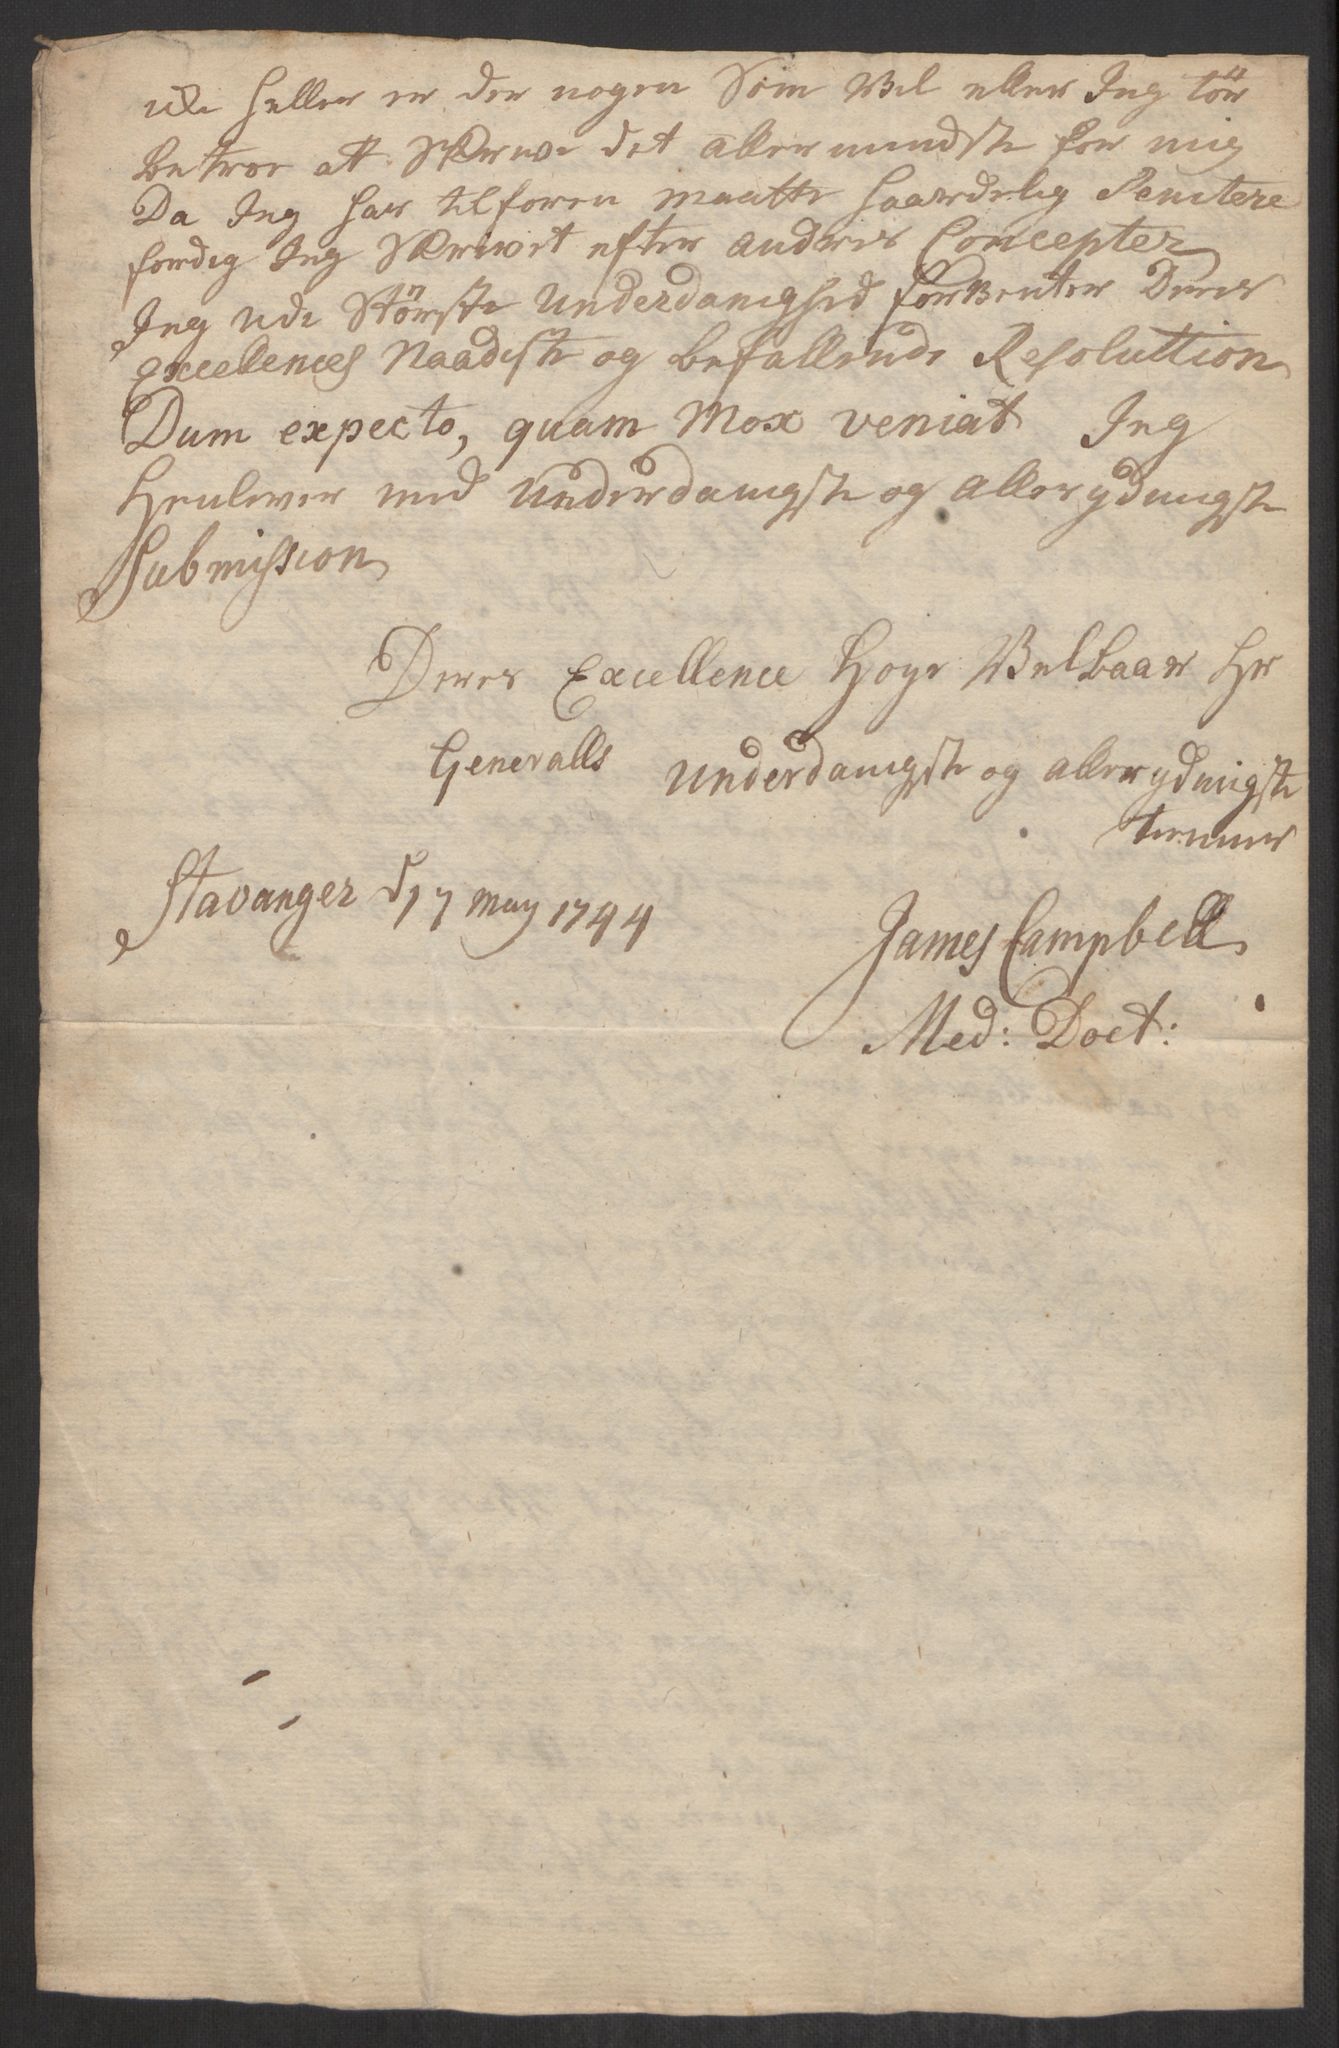 ike heller er der nogen Som Vil eller Jeg tör
betroe att Skrive det allermindste for mig
Da Jeg har tilforen maatte haardelig Penitere
fordig Jeg Skrivet efter andres Concepter
Jeg udi Störste Underdanighed forventer Deres
Excellences Naadiste og befallende Resoluttion
Dum expecto, quam Mox veniat Jeg
Henlever med Underdanigste og allerydmigste
Submission
Deres Excellence Höye Velbaar Hr
Generalls Underdanigste og allerydmigste
tienner
Stavanger d 17 may 1744
James Campbell
Med: Doct: